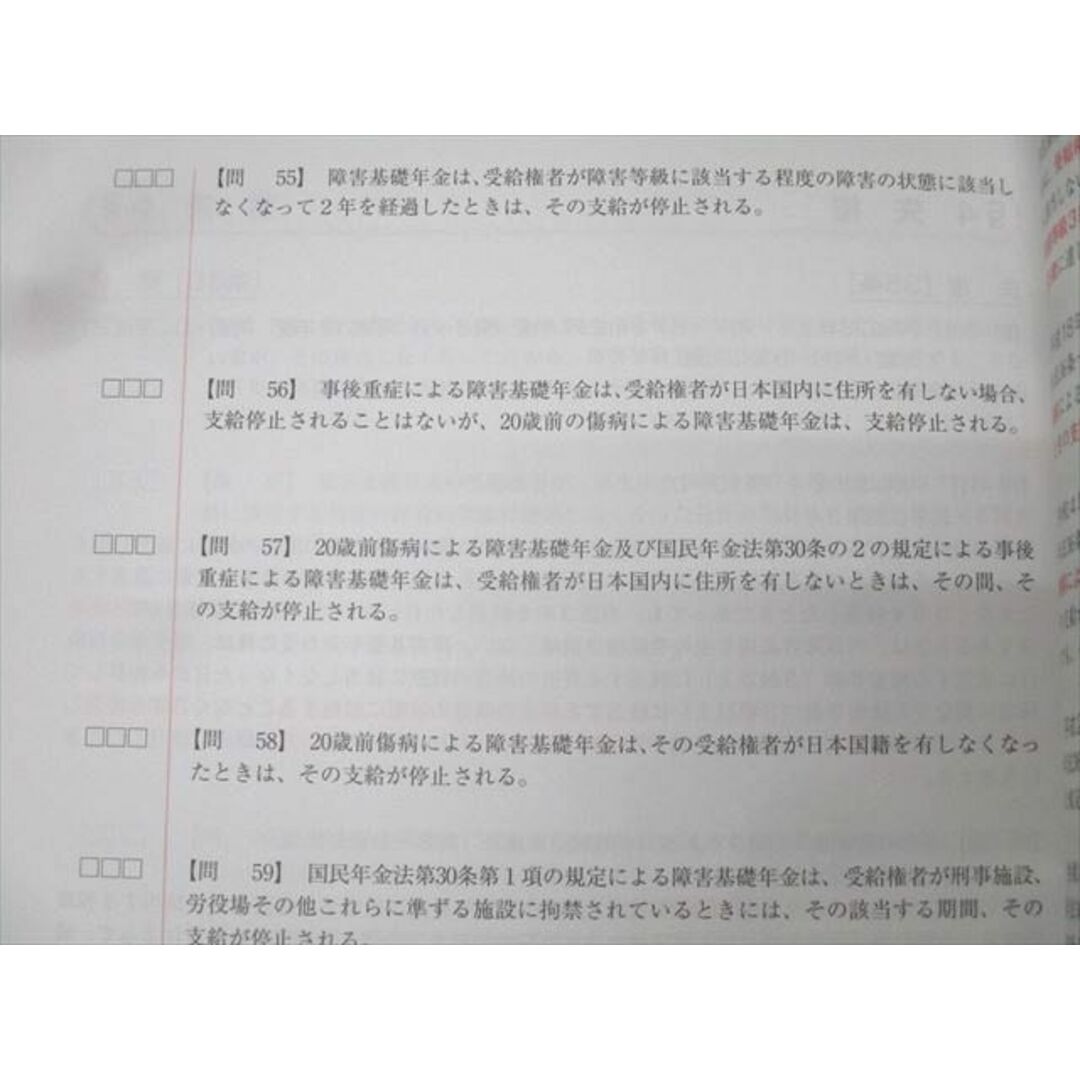 □□□ 【問 55】 障害基礎年金は、受給権者が障害等級に該当する程度の障害の状態に該当し
なくなって２年を経過したときは、その支給が停止される。
□□□ 【問 56】 事後重症による障害基礎年金は、受給権者が日本国内に住所を有しない場合、
支給停止されることはないが、20歳前の傷病による障害基礎年金は、支給停止される。
□□□ 【問 57】 20歳前傷病による障害基礎年金及び国民年金法第30条の２の規定による事後
重症による障害基礎年金は、受給権者が日本国内に住所を有しないときは、その間、そ
の支給が停止される。
□□□ 【問 58】 20歳前傷病による障害基礎年金は、その受給権者が日本国籍を有しなくなっ
たときは、その支給が停止される。
□□□ 【問 59】 国民年金法第30条第１項の規定による障害基礎年金は、受給権者が刑事施設、
労役場その他これらに準ずる施設に拘禁されているときには、その該当する期間、その
支給が停止される。